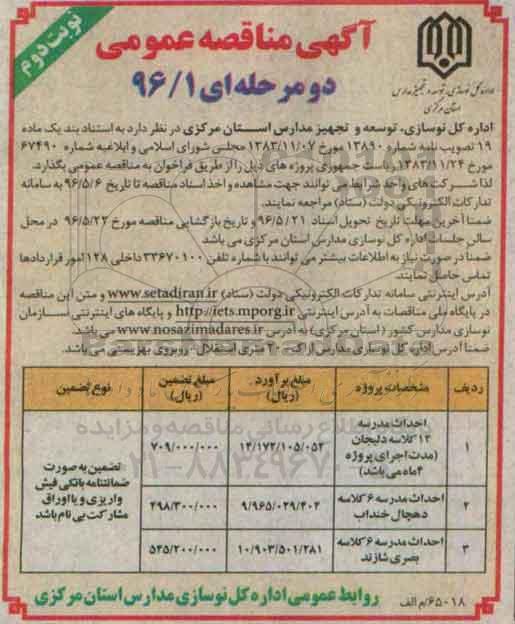 نوبت دوم
آگهی مناقصه عمومی
دو مرحله‌ای ۹۶/۱
اداره کل نوسازی، توسعه و تجهیز مدارس
استان مرکزی
اداره کل نوسازی، توسعه و تجهیز مدارس استان مرکزی در نظر دارد به استناد بند یک ماده
۱۹ تصویب نامه شماره ۱۳۸۹۰ مورخ ۱۳۸۳/۱۱/۰۷ مجلس شورای اسلامی و ابلاغیه شماره ۶۷۴۹۰
مورخ ۱۳۸۳/۱۱/۲۴ ریاست جمهوری پروژه های ذیل را از طریق فراخوان به مناقصه عمومی بگذارد.
لذا شرکت های واجد شرایط می توانند جهت مشاهده و اخذ اسناد مناقصه تا تاریخ ۹۶/۵/۶ به سامانه
تدارکات الکترونیکی دولت (ستاد) مراجعه نمایند.
ضمنا آخرین مهلت تاریخ تحویل اسناد ۹۶/۵/۲۱ و تاریخ بازگشایی مناقصه مورخ ۹۶/۵/۲۲ در محل
سالن جلسات اداره کل نوسازی مدارس استان مرکزی می باشد
ضمنا در صورت نیاز به اطلاعات بیشتر می توانند با شماره تلفن ۳۳۶۷۰۱۰۰ داخلی ۱۲۸ امور قراردادها
تماس حاصل نمایند.
آدرس اینترنتی سامانه تدارکات الکترونیکی دولت (ستاد) www.setadiran.ir و متن این مناقصه
در پایگاه ملی مناقصات به آدرس اینترنتی http://iets.mporg.ir و پایگاه های اینترنتی سازمان
نوسازی مدارس کشور (استان مرکزی) به آدرس www.nosazimadares.ir می باشد.
ضمنا آدرس اداره کل نوسازی مدارس اراک ۲۰ متری استقلال - روبروی بهزیستی می باشد.
ردیف مشخصات پروژه مبلغ برآورد (ریال) مبلغ تضمین (ریال) نوع تضمین
۱ احداث مدرسه ۱۲ کلاسه دلیجان (مدت اجرای پروژه ۴ ماه می باشد) ۱۴/۱۷۲/۱۰۵/۰۵۲ ۷۰۹/۰۰۰/۰۰۰
تضمین به صورت
ضمانتنامه بانکی فیش
واریزی و یا اوراق
مشارکت بی نام باشد
۲ احداث مدرسه ۶ کلاسه دهچال خنداب ۹/۹۶۵/۰۲۹/۴۰۲ ۴۹۸/۳۰۰/۰۰۰
۳ احداث مدرسه ۶ کلاسه بصری شازند ۱۰/۹۰۳/۵۰۱/۲۸۱ ۵۴۵/۲۰۰/۰۰۰
روابط عمومی اداره کل نوسازی مدارس استان مرکزی
۶۵۰۱۸/م الف